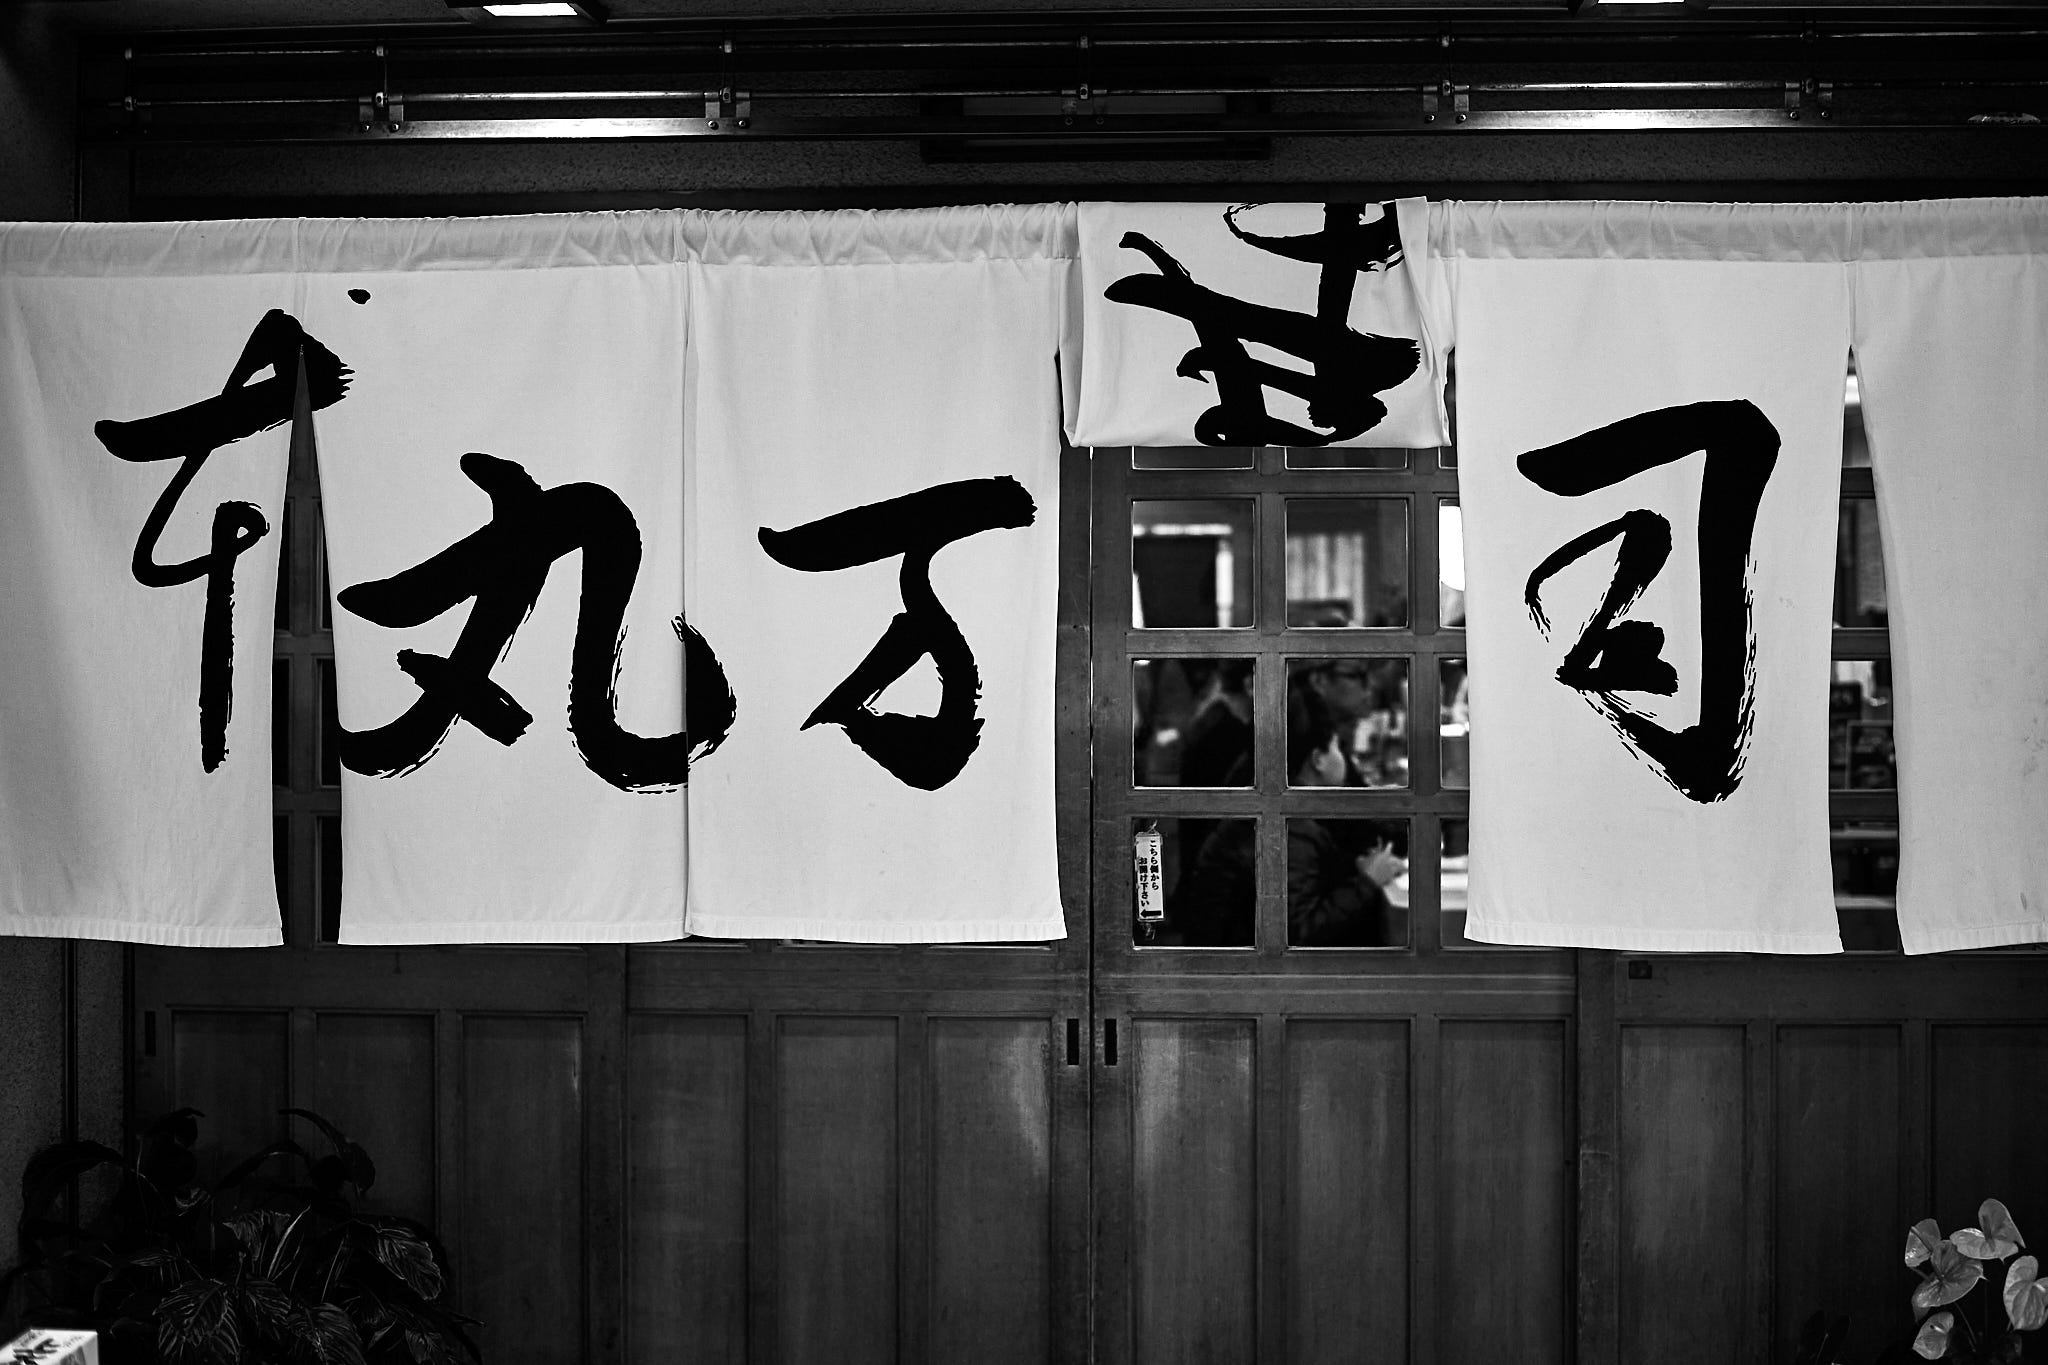 丸万寿司
こちら側から
お開け下さい